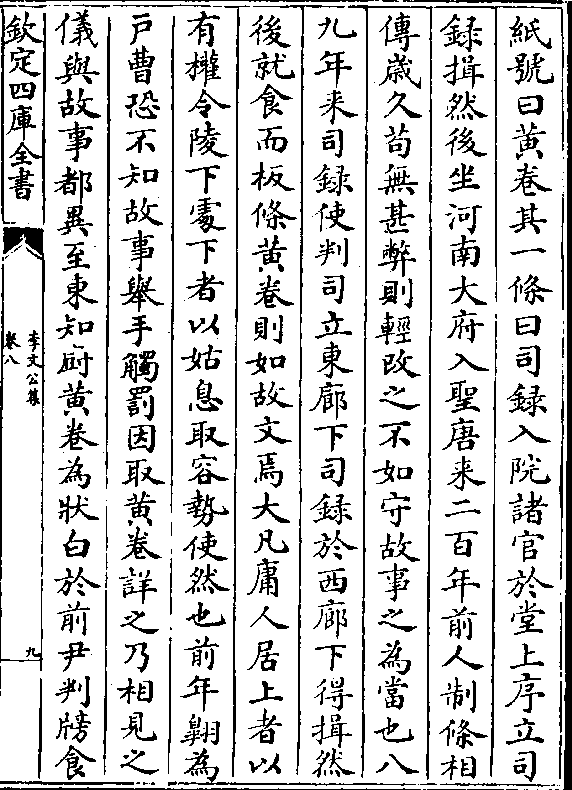 紙號曰黄卷其一條曰司録入院諸官於堂上序立司
録揖然後坐河南大府入聖唐来二百年前人制條相
傳歳久苟無甚弊則輕改之不如守故事之為當也八
九年来司録使判司立東廊下司録於西廊下得揖然
後就食而板條黄卷則如故文焉大凡庸人居上者以
有權令陵下處下者以姑息取容勢使然也前年翺為
戸曹恐不知故事舉手觸罰因取黄卷詳之乃相見之
儀與故事都異至東知厨黄卷為狀白於前尹判牓食
欽定四庫全書
李文公集
卷八
九